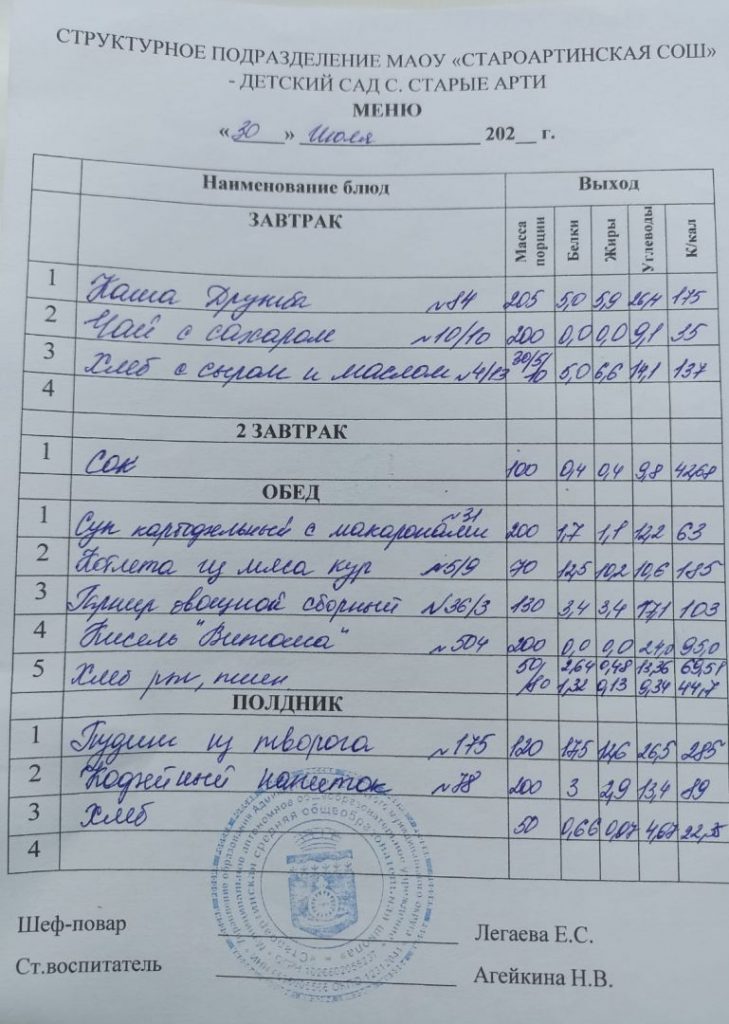 СТРУКТУРНОЕ ПОДРАЗДЕЛЕНИЕ МАОУ «СТАРОАРТИНСКАЯ СОШ»
- ДЕТСКИЙ САД С. СТАРЫЕ АРТИ
МЕНЮ
«30» Июля 202__ г.
Наименование блюд Выход
ЗАВТРАК Масса порции Белки Жиры Углеводы К/кал
1 Каша Дружба №84 205 5,0 5,9 26,4 175
2 Чай с сахаром №10/10 200 0,0 0,0 9,1 35
3 Хлеб с сыром и маслом №4/13 30/5/10 5,0 6,6 14,1 137
4
2 ЗАВТРАК
1 Сок 100 0,4 0,4 9,8 42,68
ОБЕД
1 Суп картофельный с макаронами №31 200 1,7 1,1 12,2 63
2 Котлета из мяса кур №5/9 70 12,5 10,2 10,6 185
3 Гарнир овощной сборный №36/3 130 3,4 3,4 17,1 103
4 Кисель "Витошка" №504 200 0,0 0,0 24,0 95,0
5 Хлеб рж, пшен 50/ 2,64 0,48 13,36 69,58
/40 1,32 0,13 9,34 44,7
ПОЛДНИК
1 Пудинг из творога №175 120 17,5 12,6 26,5 285
2 Кофейный напиток №78 200 3 2,9 13,4 89
3 Хлеб 50 0,66 0,07 4,67 22,35
4
Шеф-повар Легаева Е.С.
Ст.воспитатель Агейкина Н.В.